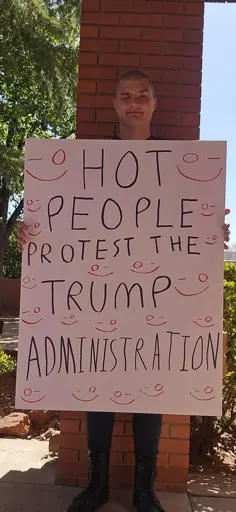 HOT
PEOPLE
PROTEST THE
TRUMP
ADMINISTRATION